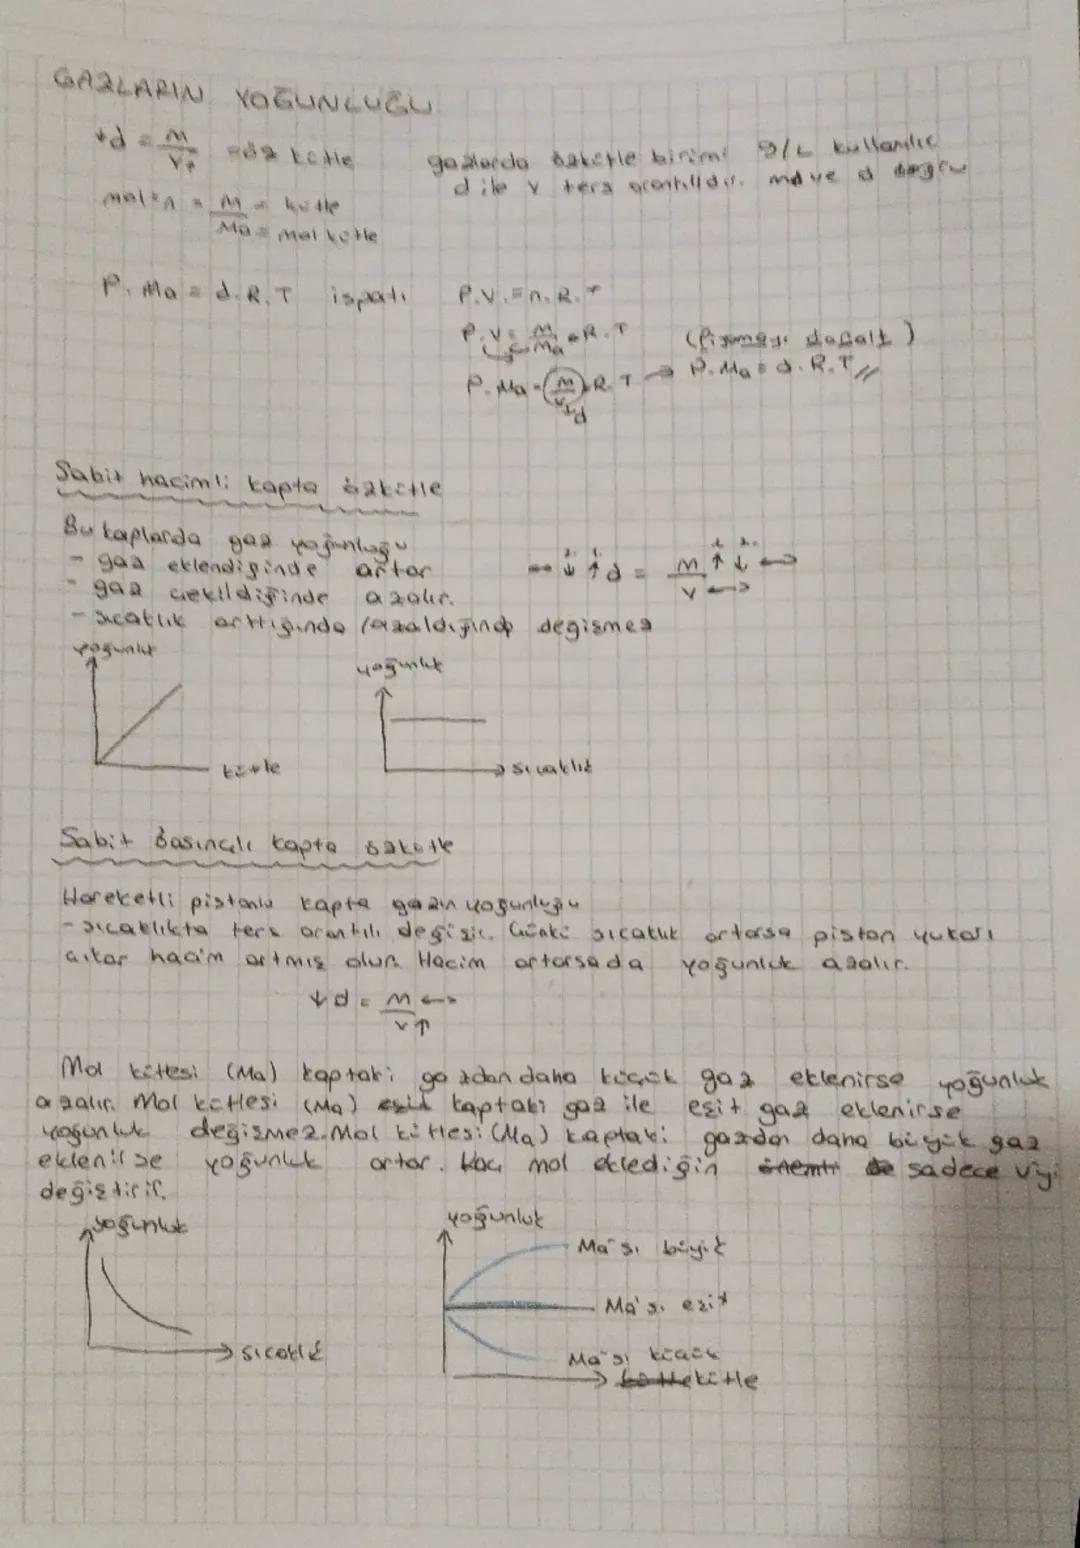 GAZLARIN YOĞUNLUĞU
d = m/V = öz kütle
gazlarda özkütle birimi g/L kullanılır
d ile V ters orantılıdır. m ve d doğru
mol = n = m = kütle
Ma = mol kütle
P. Ma = d. R. T ispatı
P.V = n. R. T
P.V = m/Ma . R. T
P. Ma = m/V . R. T → P. Ma = d. R. T //
d
Sabit hacimli kapta özkütle
Bu kaplarda gaz yoğunluğu
- gaz eklendiğinde artar
- gaz çekildiğinde azalır.
- sıcaklık arttığında / azaldığında değişmez
↔ ↓ ↑ d = m ↑ ↓ ↔
V ↔
yoğunluk
yoğunluk
kütle
sıcaklık
Sabit basınçlı kapta özkütle
Hareketli pistonlu kapta gazın yoğunluğu
- sıcaklıkta ters orantılı değişir. Çünkü sıcaklık artarsa piston yukarı
çıkar hacim artmış olur. Hacim artarsada yoğunluk azalır.
↓ d = m ↔
V ↑
Mol kütlesi (Ma) kaptaki gazdan daha küçük gaz eklenirse yoğunluk
azalır. Mol kütlesi (Ma) kaptaki gaz ile eşit gaz eklenirse
yoğunluk değişmez. Mol kütlesi (Ma) kaptaki gazdan daha büyük gaz
eklenilse yoğunluk artar. Kaç mol eklediğin sadece V'yi
değiştirir.
yoğunluk
yoğunluk
Ma'sı büyük
Ma'sı eşit
sıcaklık
Ma'sı küçük
kütle